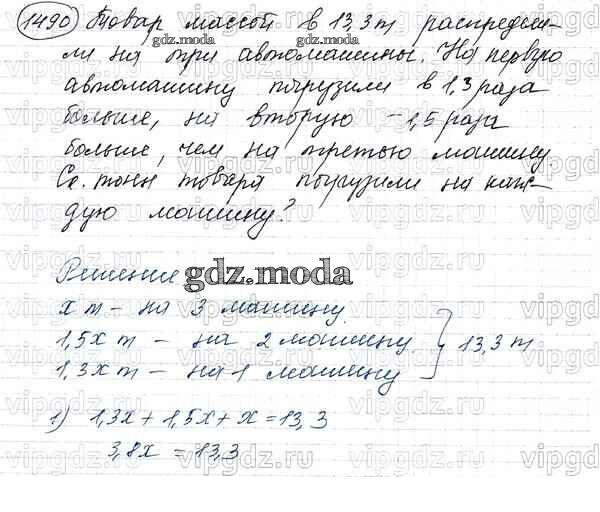 1490 Товар массой в 13,3 т распредели-
ли на три автомашины. На первую
автомашину погрузили в 1,3 раза
больше, на вторую - 1,5 раза
больше, чем на третью машину.
Ск. тонн товара погрузили на каж-
дую машину?
Решение
x т - на 3 машину.
1,5x т - на 2 машину. } 13,3 т
1,3x т - на 1 машину
1) 1,3x + 1,5x + x = 13,3
3,8x = 13,3
gdz.moda
gdz.moda
gdz.moda
vipgdz.ru